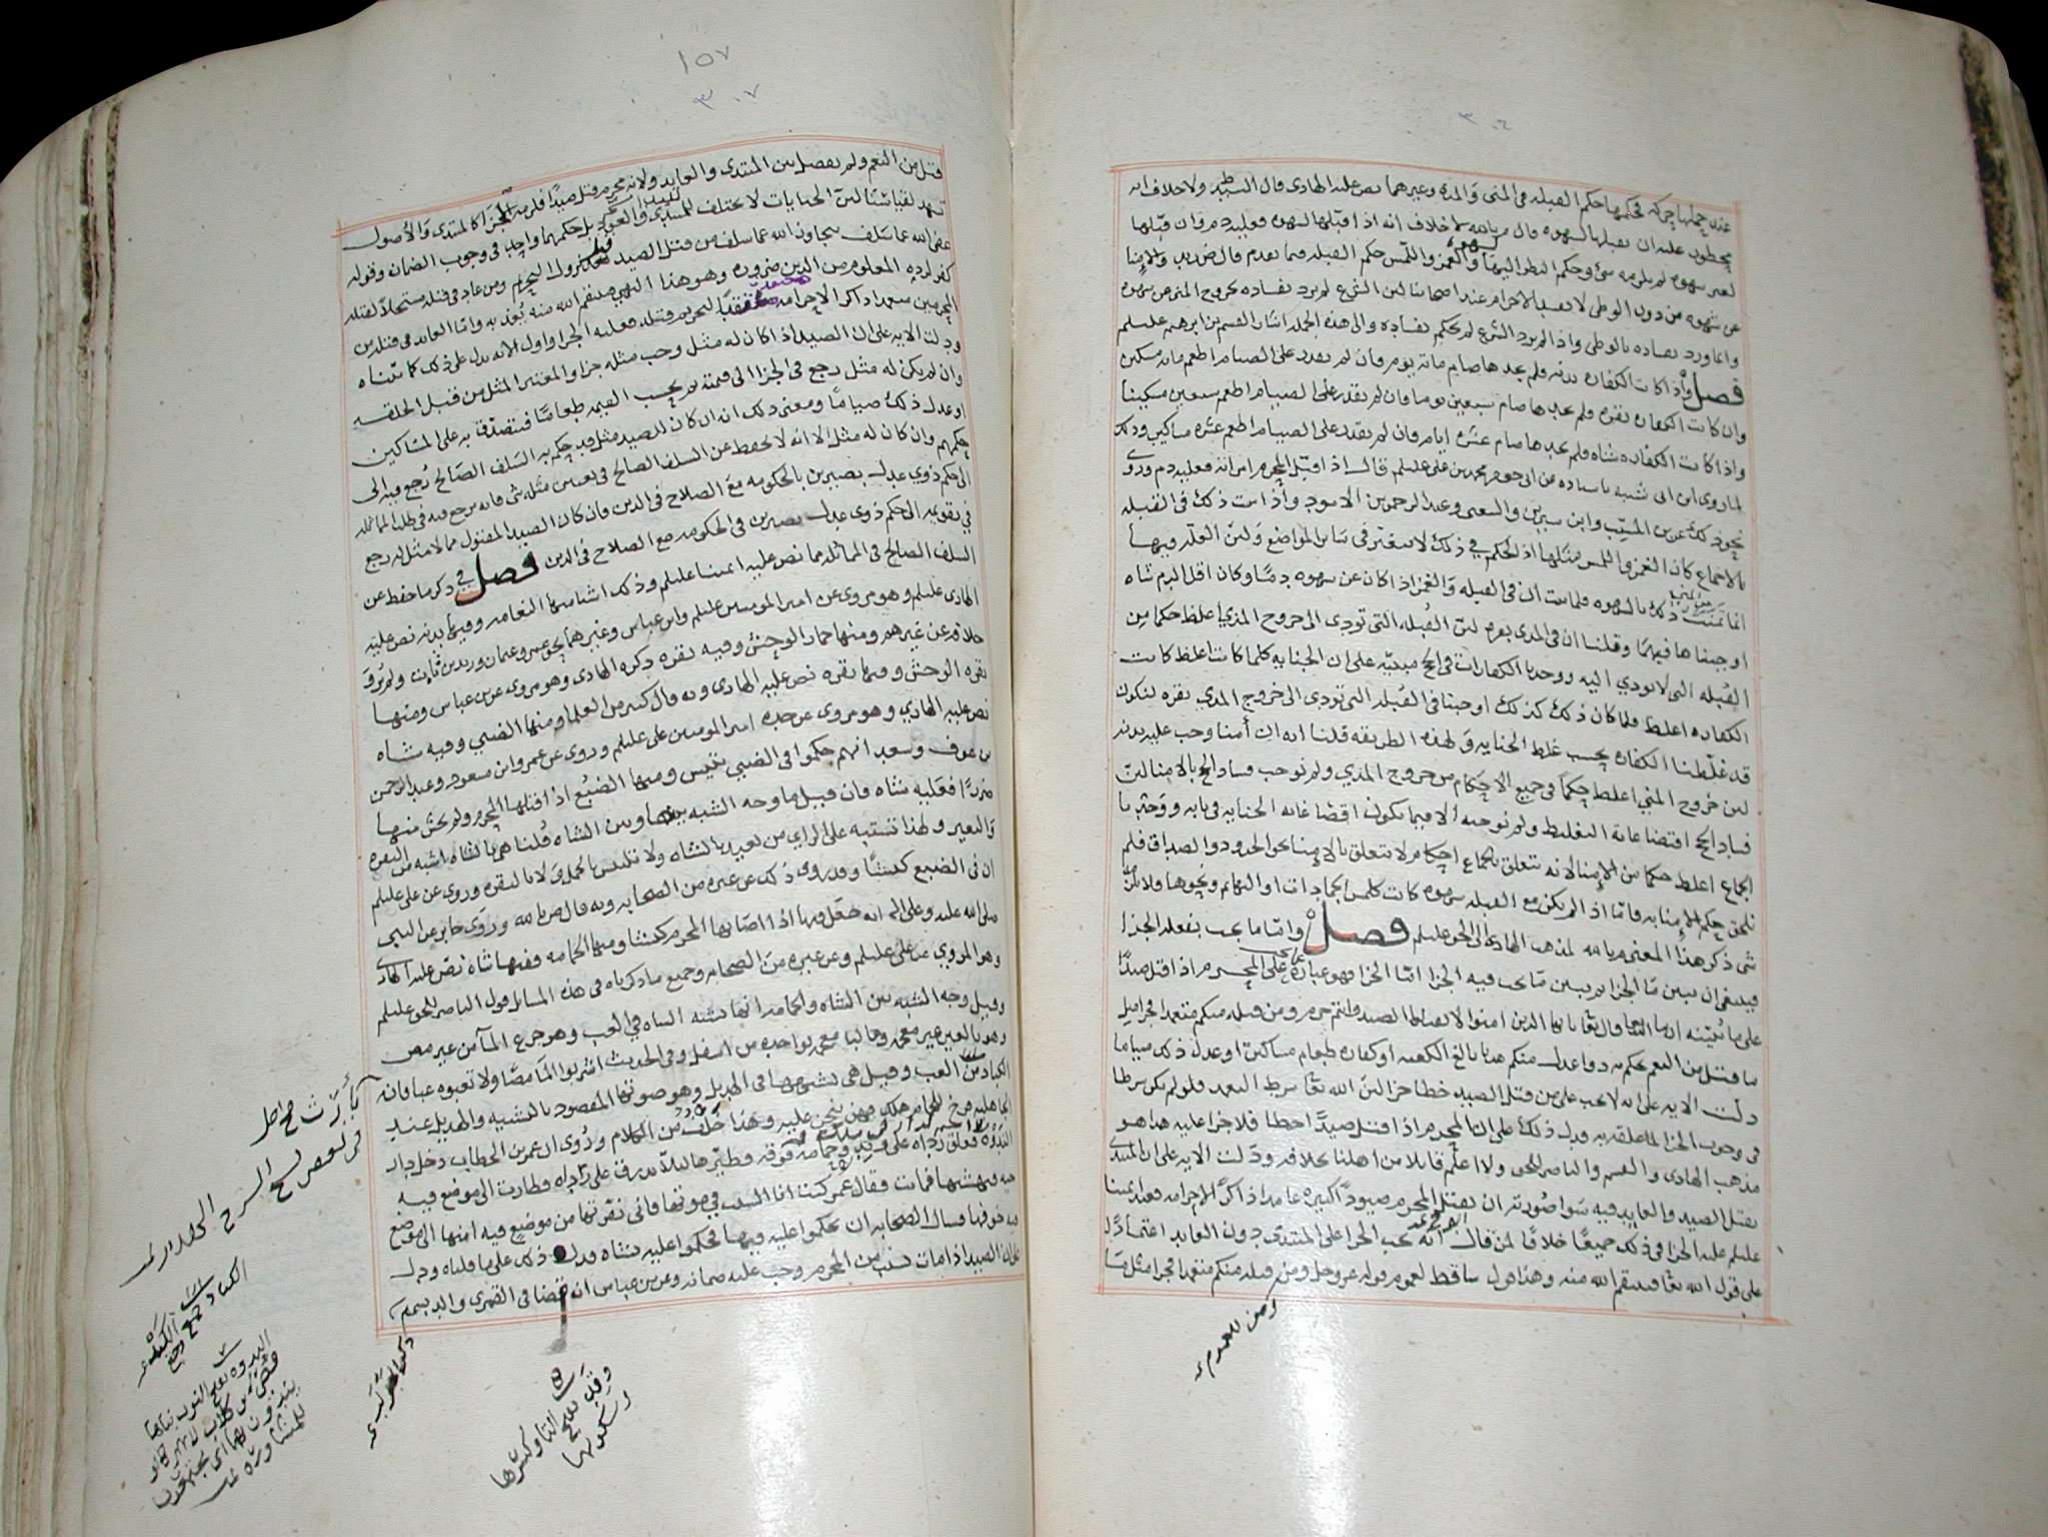 ٣٠٤
عندي حملها حركه محكمها حكم القبله في المنى والمذي وغيرهما نص عليه الهادي قال السيد ط ولا خلاف انه
محظور عليه ان يقبلها لشهوه قال م بالله لا خلاف انه اذا قبلها لشهوه فعليه دم وان قبلها
لغير شهوه لم يلزمه شي وحكم النظر اليها لشهوه والغمز واللمس حكم القبله فيما تقدم قال ض زيد والامنا
عن شهوه من دون الوطي لا يفسد الاحرام عند اصحابنا لان الشرع لم يرد بفساده بخروج المني عن شهوه
وانما ورد بفساده بالوطي واذا لم يرد الشرع لم نحكم بفساده والى هذه الجمله اشار القسم بن ابرهيم عليلم
فصل واذا كانت الكفاره بدنه فلم يجدها صام مائة يوم فان لم يقدر على الصيام اطعم مائه مسكين
وان كانت الكفاره بقره فلم يجدها صام سبعين يوما فان لم يقدر على الصيام اطعم سبعين مسكينا
واذا كانت الكفاره شاه فلم يجدها صام عشره ايام فان لم يقدر على الصيام اطعم عشره مساكين وذلك
لما روى ابن ابي شيبه باسناده عن ابي جعفر محمد بن علي عليلم قال اذا قبل المحرم امراته فعليه دم وروى
نحو ذلك عن بن المسيب وابن سيرين والشعبي وعبد الرحمن بن الاسود واذا ثبت ذلك في القبله
بالاجماع كان الغمز واللمس مثلها اذ الحكم في ذلك لا يفترق في سائر المواضع ولان العله فيها
انها تمتعت ذلك بالشهوه فلما ثبت ان في القبله والغمز اذا كان عن شهوه دما وكان اقل الدم شاه
اوجبناها فيهما وقلنا ان في المذي بقره لان القُبله التي تودي الى خروج المذي اغلظ حكما من
القُبله التي لا تودي اليه ووجدنا الكفارات في الحج مبنيه على ان الجنايه كلما كانت اغلظ كانت
الكفاره اغلظ فلما كان ذلك كذلك اوجبنا في القُبله التي تودي الى خروج المذي بقره لتكون
قد غلّظنا الكفاره بحسب غلظ الجنايه ولهذه الطريقه قلنا انه ان أمنا وجب عليه بدنه
لان خروج المني اغلظ حكما في جميع الاحكام من خروج المذي ولم نوجب فساد الحج بالامنا لان
فساد الحج اقتضا غاية التغليظ ولم نوجبه الا فيما يكون اقتضا غاية الجنايه في بابه ووجدنا
الجماع اغلظ حكما من الامنا لانه تتعلق بالجماع احكام لا تتعلق بالامنا نحو الحدود والصداق فلم
نلحق حكم الامنا به فاما اذا لم يكن مع القبله شهوه كانت كلمس الجمادات او البهائم ونحوها ولا يلزمه
شي ذكر هذا المعنى م بالله لمذهب الهادي الى الحق عليلم فصل واما ما يجب بفعله الجزا
فينبغي ان نبين ما الجزا ثم نبين ما يجب فيه الجزا اما الجزا فهو عباره عما يجب على المحرم اذا قتل صيدًا
على ما نُبيّنه ان شا الله قال تعا يا ايها الذين امنوا لا تقتلوا الصيد وانتم حرم ومن قتله منكم متعمدا فجزا مثل
ما قتل من النعم يحكم به ذوا عدل منكم هديا بالغ الكعبه او كفاره طعام مساكين او عدل ذلك صياما
دلت الايه على انه لا يجب على من قتل الصيد خطا جزا لان الله تعا شرط التعمد فلو لم يكن شرطا
في وجوب الجزا لما علقه به فدل ذلك على ان المحرم اذا قتل صيدًا خطا فلا جزا عليه هذا هو
مذهب الهادي والقسم والناصر للحق ولا اعلم قائلا من اهلنا بخلافه ودلت الايه على ان المبتدي
بقتل الصيد والعايد فيه سوا صُورته ان يقتل المحرم صيودًا كثيره عامدا ذاكرًا لاحرامه فعند ايمتنا
عليلم عليه الجزا في ذلك جميعًا خلافًا لمن قال انه يجب الجزا على المبتدي دون العايد اعتمادًا
على قول الله تعا فينتقم الله منه وهذا قول ساقط لعموم قوله عز وجل ومن قتله منكم متعمدا فجزا مثل ما
١٥٧
٣٠٧
قتل من النعم ولم يفصل بين المبتدي والعايد ولانه محرم قتل صيدًا فلزمه الجزا كالمبتدي والاصول
تشهد لقياسنا لان الجنايات لا يختلف المبتدي والعود بل حكمهما واحد في وجوب الضمان وقوله
عفى الله عما سلف يتجاوز الله عما سلف من قتل الصيد قبل نزول التحريم ومن عاد في قتله مستحلا لقتله
كفر لرده المعلوم من الدين ضروره وهو هذا المنتقم الله منه يُعذبه واما العايد في قتله من
المحرمين متعمدا ذاكرا لاحرامه معتقدا لتحريم قتله فعليه الجزا واول الايه يدل على ذلك كما بيّناه
ودلت الايه على ان الصيد اذا كان له مثل وجب مثله جزا والمعتبر المثل من قبل الخلقه
وان لم يكن له مثل رجع في الجزا الى قيمته ثم يحسب القيمه طعامًا فتتصدّق به على المساكين
او عدل ذلك صيامًا ومعنى ذلك انه ان كان للصيد مثل قد حكم به السلف الصالح رُجع فيه الى
حكمهم وان كان له مثل الا انه لا يحفظ عن السلف الصالح في تعيين مثله شي فانه يرجع فيه في طلب المماثله
الى حكم ذوي عدل بصيرين بالحكومه مع الصلاح في الدين وان كان الصيد المقتول مما لا مثل له رجع
في تقويمه الى حكم ذوي عدل بصيرين في الحكومه مع الصلاح في الدين فصل في ذكر ما حفظ عن
السلف الصالح في المماثله مما نص عليه ايمتنا عليلم وذلك اشيا منها النعامه وفيها بدنه نص عليه
الهادي عليلم وهو مروي عن امير المومنين عليلم وابن عباس وغيرهما نحو عمر وعثمان وزيد بن ثابت ولم يُروَ
خلافه عن غيرهم ومنها حمار الوحش وفيه بقره ذكره الهادي وهو مروي عن بن عباس ومنها
بقره الوحش وفيها بقره نص عليه الهادي وبه قال كثير من العلما ومنها الضبي وفيه شاه
نص عليه الهادي وهو مروي عن جده امير المومنين علي عليلم وروي عن عمر وابن مسعود وعبد الرحمن
بن عوف وسعد انهم حكموا في الضبي بتيس ومنها الضبُع اذا قتلها المحرم ولم يخش منها
ضررًا فعليه شاه فان قيل ما وجه الشبه بينها وبين الشاه قُلنا هي بالشاه اشبه من البقره
والبعير ولهذا تشتبه على الرائي من بعيد بالشاه ولا تلتبس بالجمل ولا بالبقره وروي عن علي عليلم
ان في الضبع كبشًا وقد روي ذلك عن غيره من الصحابه وبه قال م بالله وروى جابر عن النبي
صلى الله عليه وعلى اله انه جعل فيها اذا اصابها المحرم كبشا ومنها الحمامه ففيها شاه نص عليه الهادي
وهو المروي عن علي عليلم وعن غيره من الصحابه وجميع ما ذكرناه في هذه المسايل قول الناصر للحق عليلم
وقيل وجه الشبه بين الشاه والحمامه انها تشبه الشاه في العب وهو جرع الما من غير مص
وهو بالعين غير معجمه وبالبا معجمه بواحده من اسفل وفي الحديث اشربوا الما مصًا ولا تعبوه عبا فان
الكباد من العب وقيل هي تشبهها في الهديل وهو صوتها المقصود بالتشبيه والهديل عند
الجاهليه فرخ للحمام هلك فهن ينحن عليه وهذا خُلف من الكلام ورُوي ان عمر بن الخطاب دخل دار
الندوه فعلق رداه على وتد وحمامه فوقه فطيّرها لئلا تذرق على رداه فطارت الى موضع فيه
حيه فنهشتها فماتت فقال عمر كنت انا السبب في موتها فاني نفرتها من موضع فيه امنها الى موضع
فيه خوفها وسال الصحابه ان يحكموا عليه فيها فحكموا عليه بشاه فدل ذلك على ما قلناه ودل
على ان الصيد اذا مات بسبب من المحرم وجب عليه ضمانه وعن بن عباس انه قضا في القمري والدبسي
الكباد
الندوه بفتح النون بناها
قصي بن كلاب لانهم كانوا
يندون فيها اي يجتمعون
للمشاوره
وتد بفتح
التا وكسرها
وسكونها